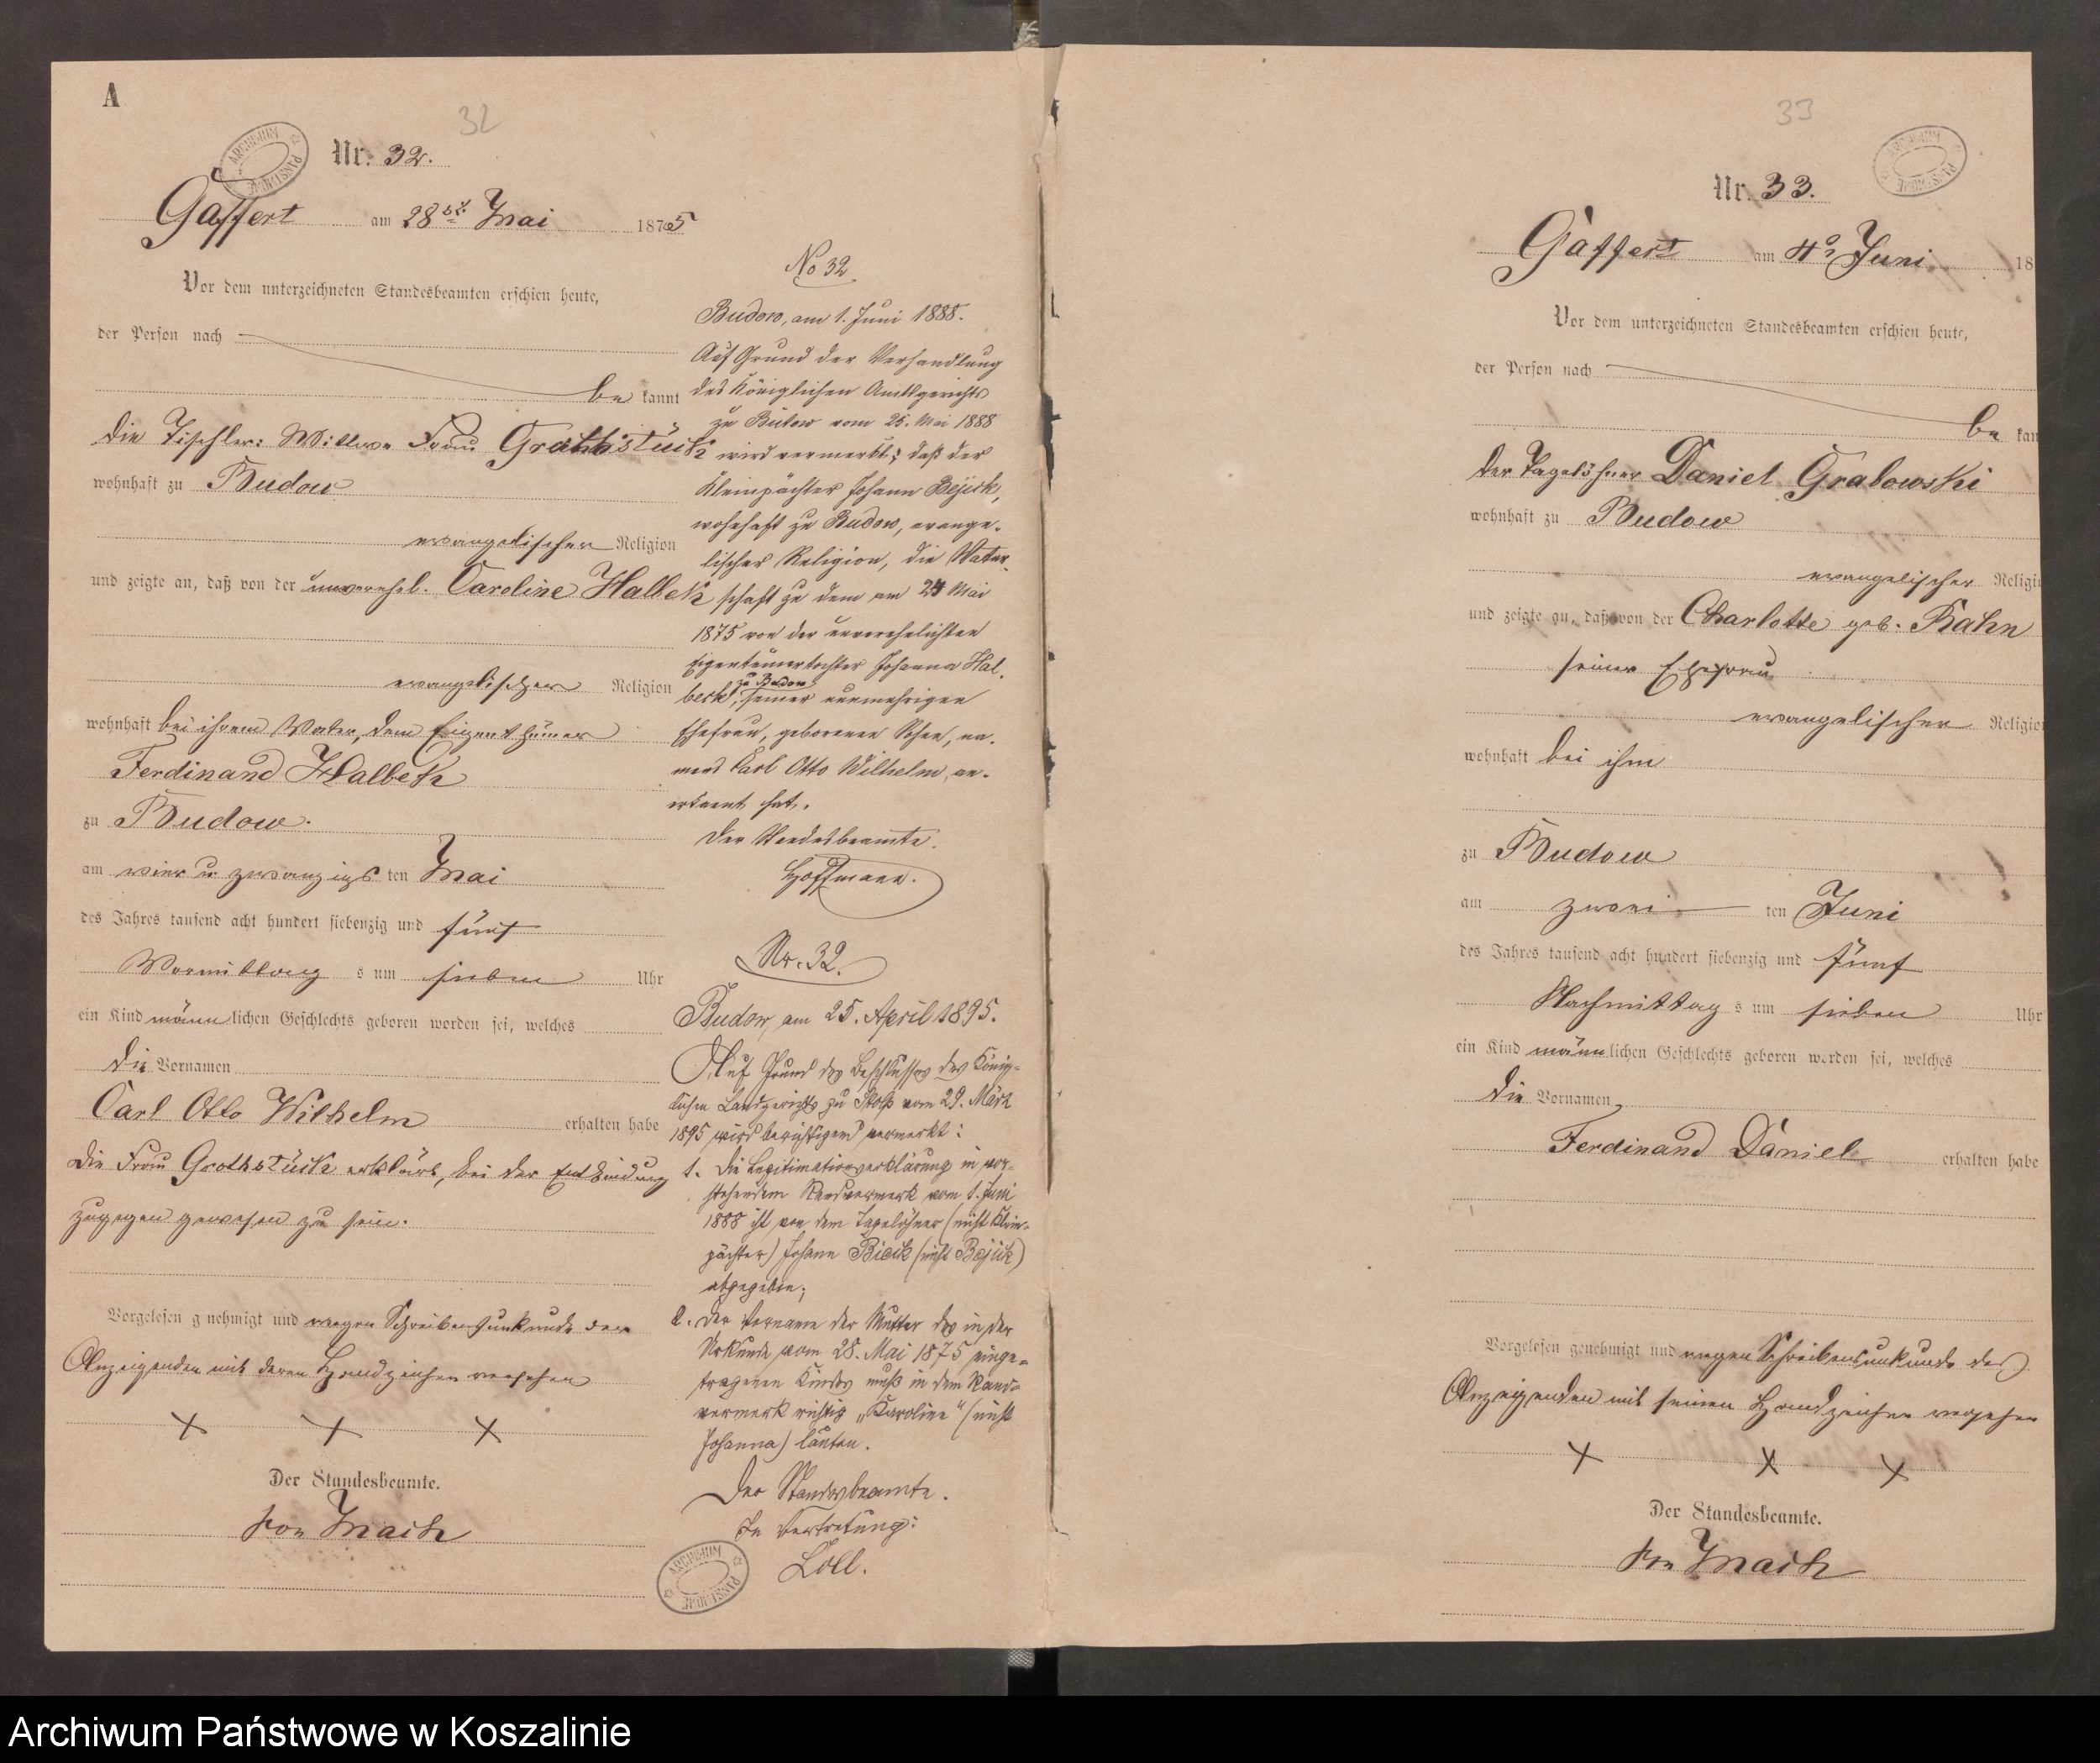 A
32
Nr. 32.
Gaffert am 28ten Mai 1875
Vor dem unterzeichneten Standesbeamten erschien heute,
der Person nach
be kannt
die Tischler: Wittwe Frau Grothstück
wohnhaft zu Budow
evangelischer Religion
und zeigte an, daß von der unverehel. Caroline Halbek
evangelischer Religion
wohnhaft bei ihrem Vater, dem Eigenthümer
Ferdinand Halbek
zu Budow.
am vier u. zwanzigs ten Mai
des Jahres tausend acht hundert siebenzig und fünf
Vormittag s um sieben Uhr
ein Kind männ lichen Geschlechts geboren worden sei, welches
die Vornamen
Carl Otto Wilhelm erhalten habe
Die Frau Grothstück erklärt, bei der Entbindung
zugegen gewesen zu sein.
Vorgelesen g nehmigt und wegen Schreibensunkunde der
Anzeigenden mit deren Handzeichen versehen
+ + +
Der Standesbeamte.
von Mach
No 32.
Budow, am 1. Juni 1888.
Auf Grund der Verhandlung
des Königlichen Amtsgerichts
zu Bütow vom 25. Mai 1888
wird vermerkt; daß der
Kleinpächter Johann Bejick,
wohnhaft zu Budow, evange-
lischer Religion, die Vater-
schaft zu dem am 24 Mai
1875 von der unverehelichten
Eigentümertochter Johanna Hal-
zu Budow
berk, seiner nunmehrigen
Ehefrau, geborenen Sohn, na-
mens Carl Otto Wilhelm, an-
erkannt hat.
Der Standesbeamte.
Hoffmann.
Nr. 32.
Budow, am 25. April 1895.
Auf Grund des Beschlusses des König-
lichen Landgerichts zu Stolp vom 29. März
1895 wird berichtigend vermerkt:
1. Die Legitimationserklärung in vor-
stehendem Randvermerk vom 1. Juni
1888 ist von dem Tagelöhner (nicht Klein-
pächter) Johann Bieik (nicht Bejick)
abgegeben;
2. Der Vorname der Mutter des in der
Urkunde vom 28. Mai 1875 einge-
tragenen Kindes muß in dem Rand-
vermerk richtig „Karoline" (nicht
Johanna) lauten.
Der Standesbeamte.
In Vertretung:
Loll.
ARCHIWUM PAŃSTWOWE
33
Nr. 33.
Gaffert am 4ten Juni 18
Vor dem unterzeichneten Standesbeamten erschien heute,
der Person nach
be kan
der Tagelöhner Daniel Grabowski
wohnhaft zu Budow
evangelischer Religi
und zeigte an, daß von der Charlotte geb. Kahn
seiner Ehefrau
evangelischer Religio
wohnhaft bei ihm
zu Budow
am zwei ten Juni
des Jahres tausend acht hundert siebenzig und fünf
Nachmittag s um sieben Uhr
ein Kind männ lichen Geschlechts geboren worden sei, welches
die Vornamen
Ferdinand Daniel erhalten habe
Vorgelesen genehmigt und wegen Schreibensunkunde des
Anzeigenden mit seinem Handzeichen versehen
+ + +
Der Standesbeamte.
von Mach
Archiwum Państwowe w Koszalinie